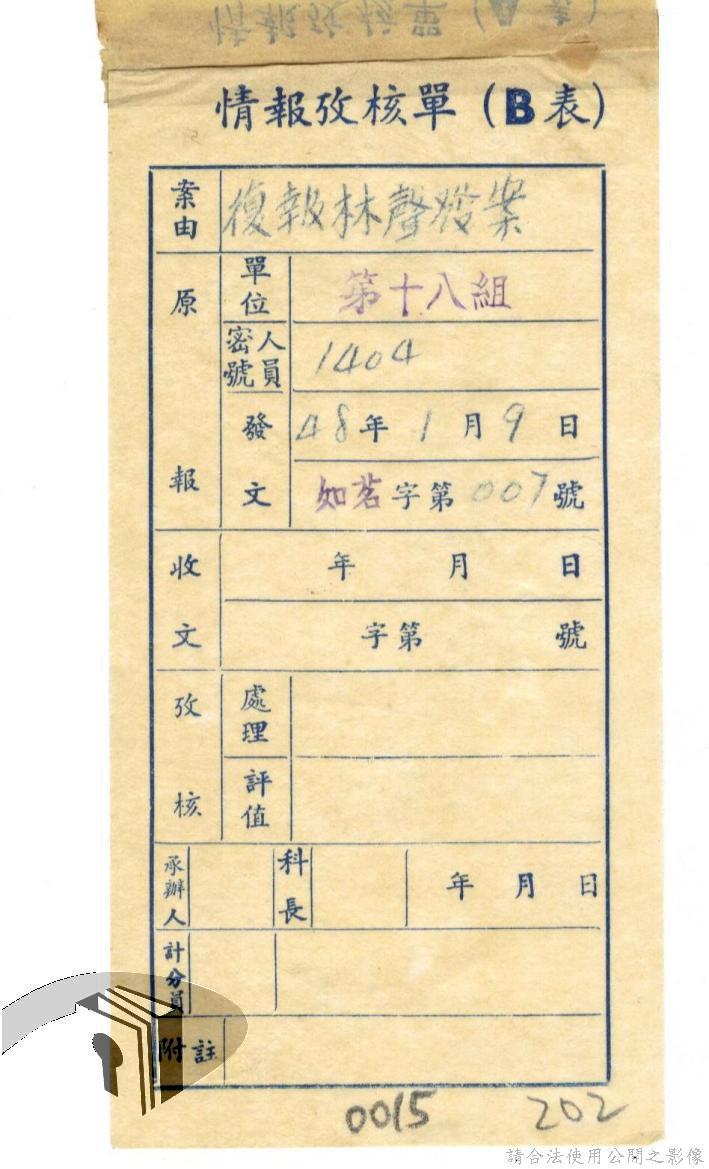 情報攷核單（B表）
案由 復報林聲發案
原報 單位 第十八組
人員密號 1404
發文 48年1月9日
如茗字第007號
收文 年 月 日
字第 號
攷核 處理
評值
承辦人 科長 年 月 日
計分員
附註
0015 202
請合法使用公開之影像